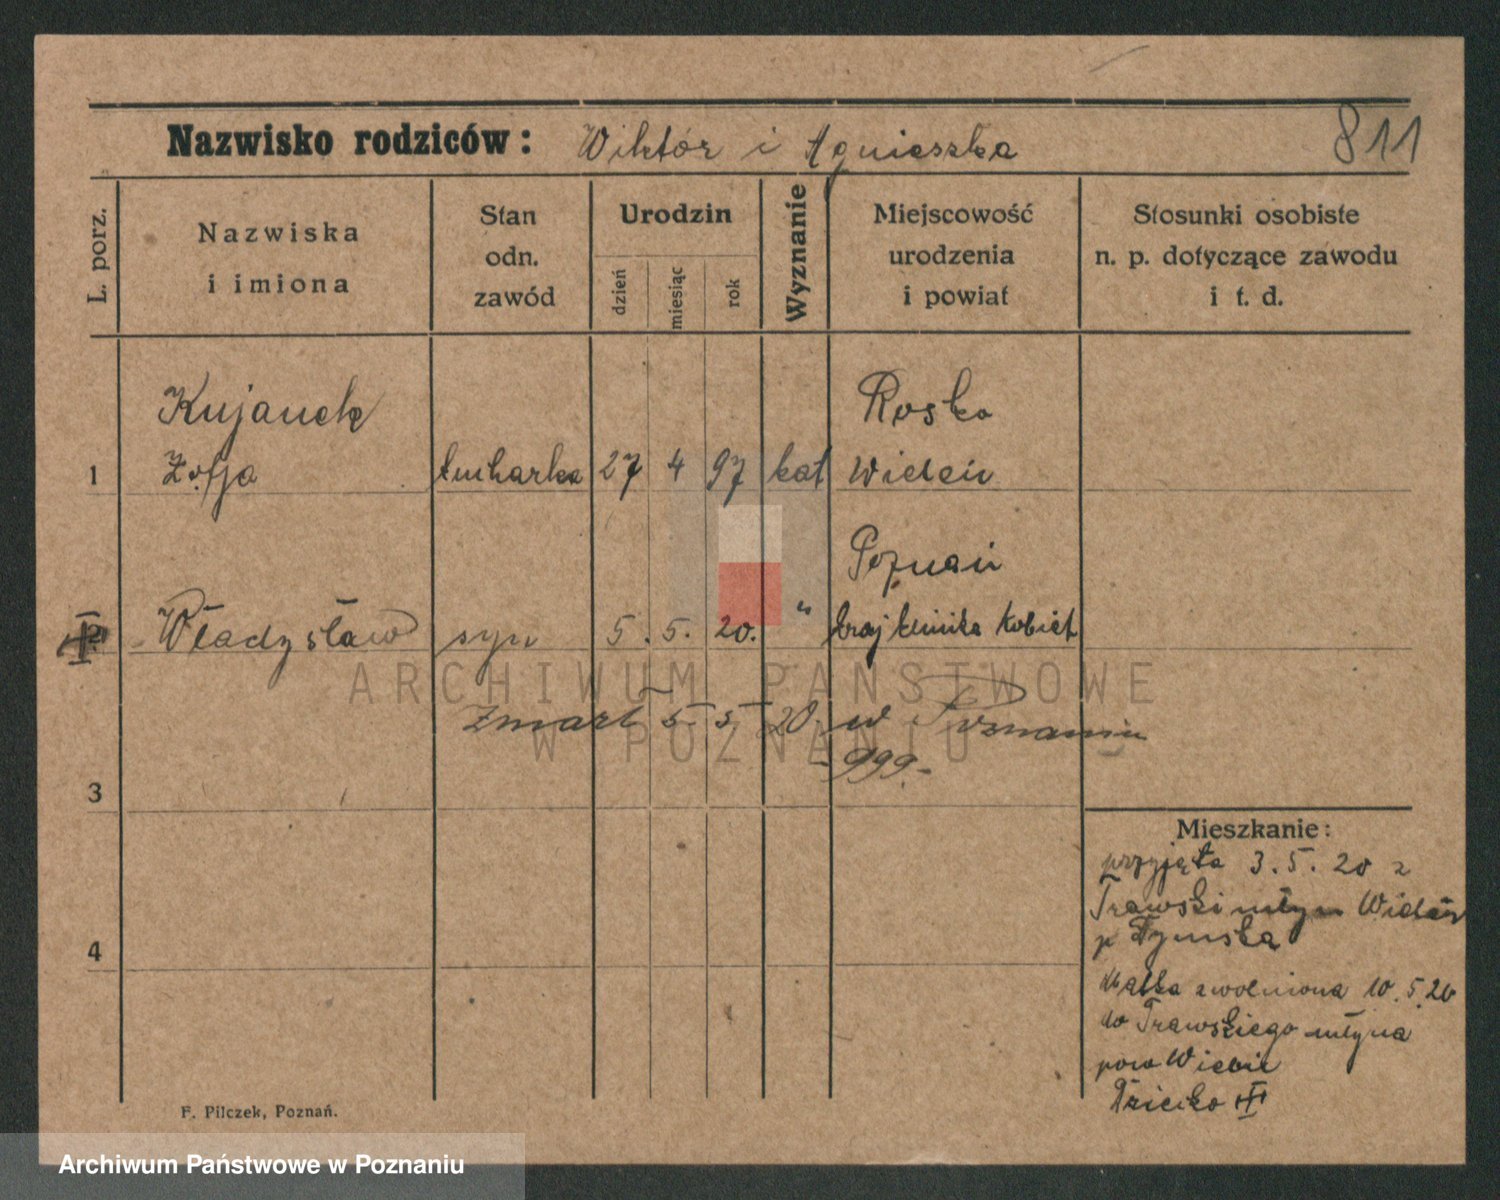 Nazwisko rodziców: Wiktór i Agnieszka 811
L. porz.
Nazwiska
i imiona
Stan
odn.
zawód
Urodzin
dzień
miesiąc
rok
Wyznanie
Miejscowość
urodzenia
i powiat
Stosunki osobiste
n. p. dotyczące zawodu
i t. d.
Kujanek Rosko
1 Zofja kucharka 27 4 97 kat Wieleń
Poznań
2 Władysław syn 5. 5. 20. " kraj klinika kobiet
zmarł 5 5 20 w Poznaniu
- 999 -
3
4
Mieszkanie:
przyjęta 3.5.20 z
Trawski młyn Wieleń
p
matka zwolniona 10.5.20
do Trawskiego młyna
pow Wieleń
Dziecko
F. Pilczek, Poznań.
ARCHIWUM PAŃSTWOWE
W POZNANIU
Archiwum Państwowe w Poznaniu